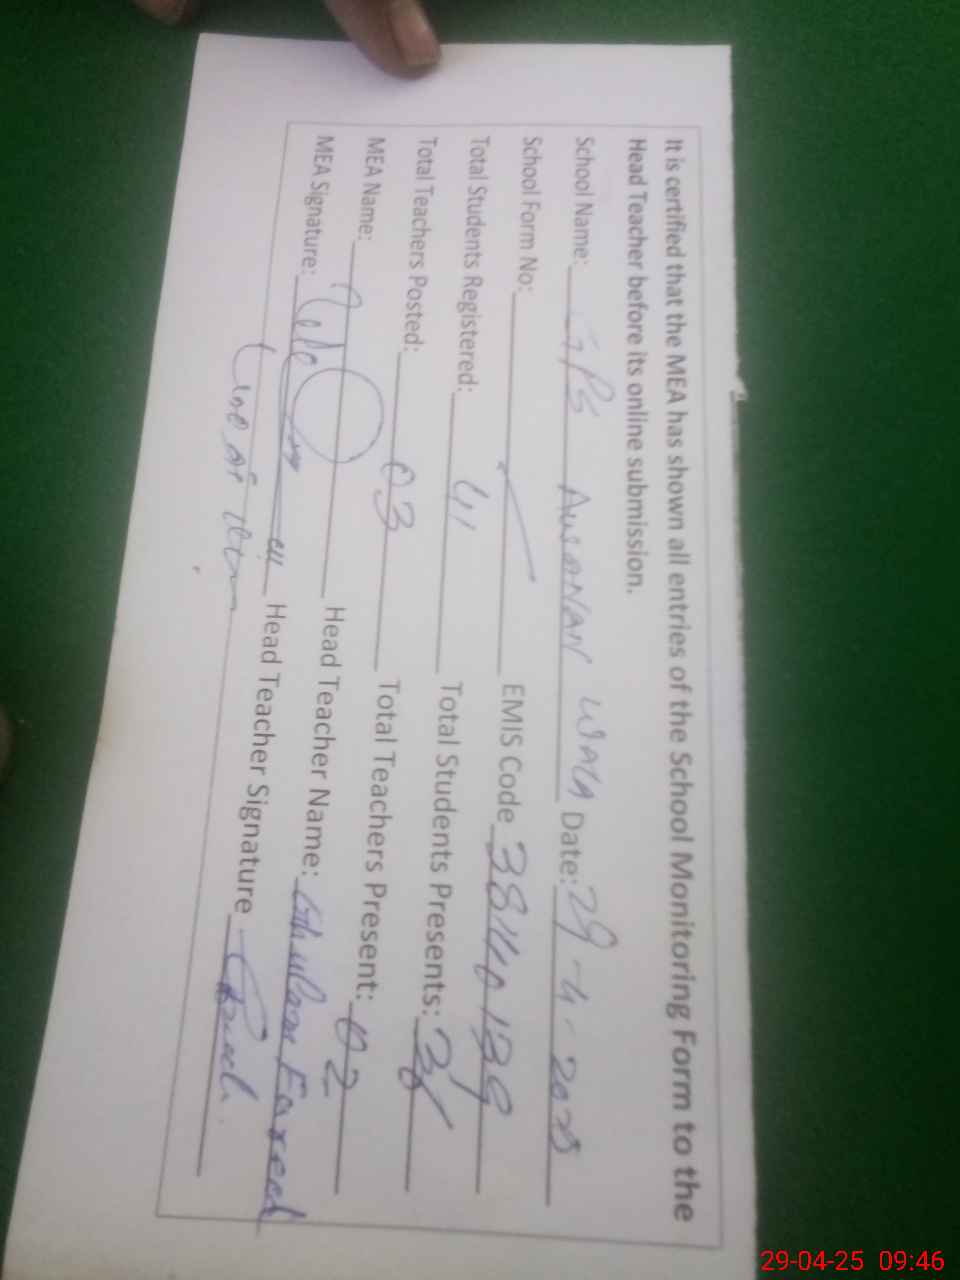 It is certified that the MEA has shown all entries of the School Monitoring Form to the
Head Teacher before its online submission.
School Name: GPS AUSANAN WALA Date: 29-4-2025
School Form No: EMIS Code 38110139
Total Students Registered: 41 Total Students Presents: 36
Total Teachers Posted: 03 Total Teachers Present: 02
MEA Name: Head Teacher Name: Ghulam Fareed
MEA Signature: Head Teacher Signature
29-04-25 09:46